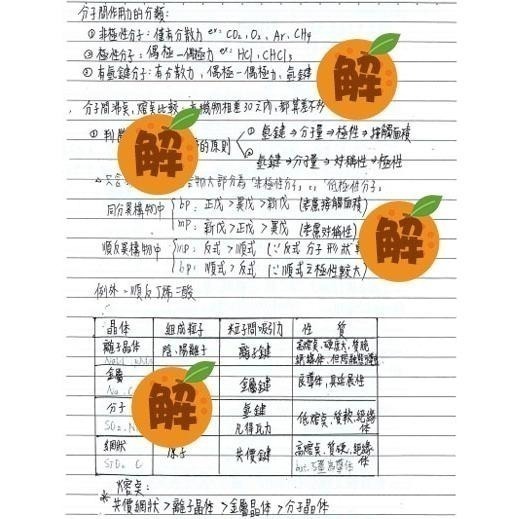 分子間作用力的分類:
① 非極性分子: 僅有分散力 ex: CO₂, O₂, Ar, CH₄
② 極性分子: 偶極一偶極力 ex: HCl, CHCl₃
③ 有氫鍵分子: 有分散力, 偶極一偶極力, 氫鍵
解
分子間沸點、熔點比較: 有機物相差30之內, 都算差不多
① 判 的原則 ① 氫鍵→分子量→極性→接觸面積
解
② 氫鍵→分子量→對稱性→極性
只含 物大部分為「非極性分子」or「低極性分子」
同分異構物中 bp: 正戊>異戊>新戊 (考慮接觸面積)
mp: 新戊>正戊>異戊 (考慮對稱性)
解
順反異構物中 mp: 反式>順式 (∵反式分子形狀
bp: 順式>反式 (∵順式之極性較大)
例外: 順反丁烯二酸
晶体 組成粒子 粒子間吸引力 性 質
離子晶体 陰、陽離子 離子鍵 高熔點、硬度大、質脆
NaCl
金屬 金屬鍵 良導体、具延展性
Na
分子 氫鍵 低熔點、質軟、絕緣体
SO₂ 凡得瓦力
解
網狀 原子 共價鍵 高熔點、質硬、絕緣体
SiO₂ C but 石墨為導体
熔點:
※ 共價網狀>離子晶体>金屬晶体>分子晶体